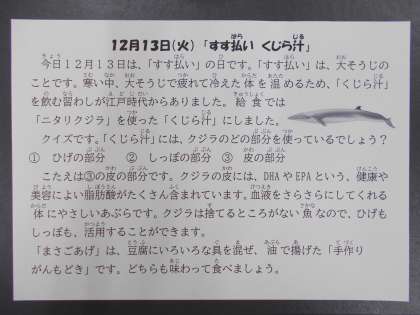 12月13日(火)「すす払い くじら汁」
今日12月13日は、「すす払い」の日です。「すす払い」は、大そうじの
ことです。寒い中、大そうじで疲れて冷えた体を温めるため、「くじら汁」
を飲む習わしが江戸時代からありました。給食では
「ニタリクジラ」を使った「くじら汁」にしました。
クイズです。「くじら汁」には、クジラのどの部分を使っているでしょう?
① ひげの部分 ② しっぽの部分 ③ 皮の部分
こたえは③の皮の部分です。クジラの皮には、DHAやEPAという、健康や
美容によい脂肪酸がたくさん含まれています。血液をさらさらにしてくれる
体にやさしいあぶらです。クジラは捨てるところがない魚なので、ひげも
しっぽも、活用することができます。
「まさごあげ」は、豆腐にいろいろな具を混ぜ、油で揚げた「手作り
がんもどき」です。どちらも味わって食べましょう。